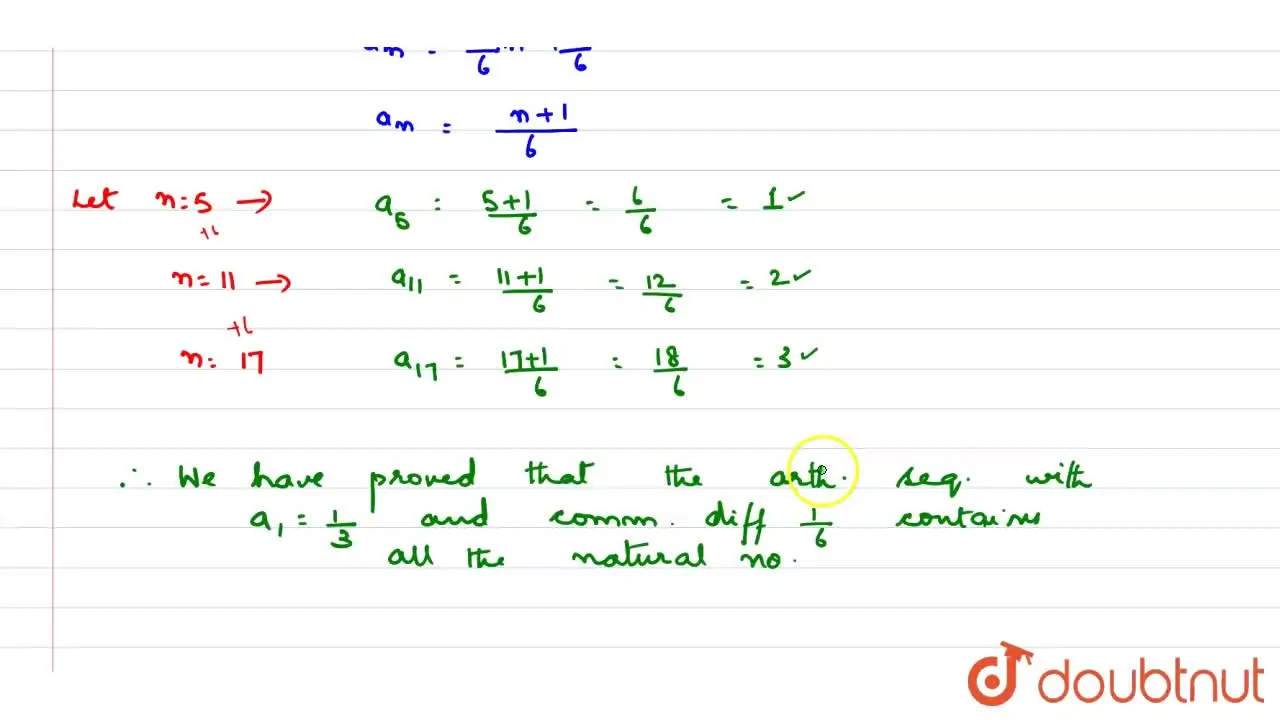 6 6
aₙ = n+1/6
Let n=5 → a₅ = 5+1/6 = 6/6 = 1 ✓
+6
n=11 → a₁₁ = 11+1/6 = 12/6 = 2 ✓
+6
n= 17 a₁₇ = 17+1/6 = 18/6 = 3 ✓
∴ We have proved that the arth. seq. with
a₁ = 1/3 and comm. diff 1/6 contains
all the natural no.
doubtnut